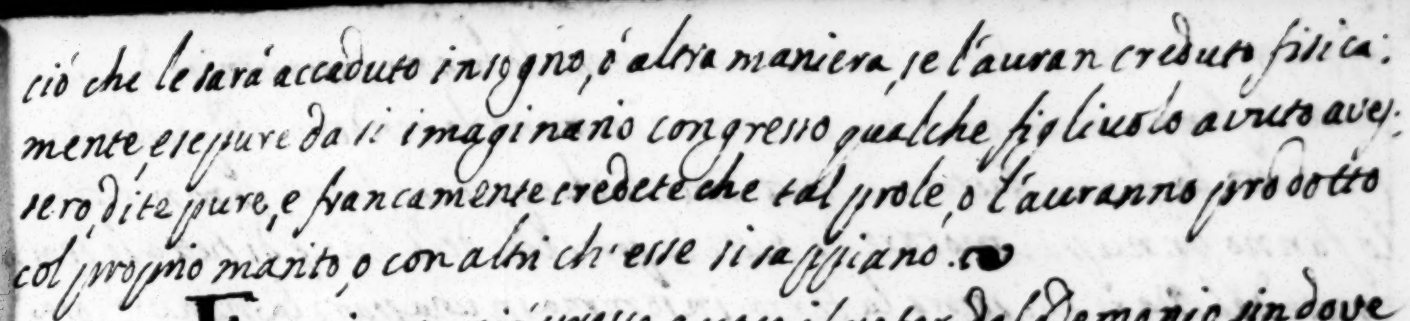 ció che le sará accaduto in sogno, ó altra maniera, se l'auran creduto fisica:
mente, e se pure da si imaginario congresso qualche figliuolo avuto aves:
sero, dite pure, e francamente credete che tal prole, o l'auranno prodotto
col proprio marito, o con altri ch'esse si sappiano.
dal Demonio sin dove